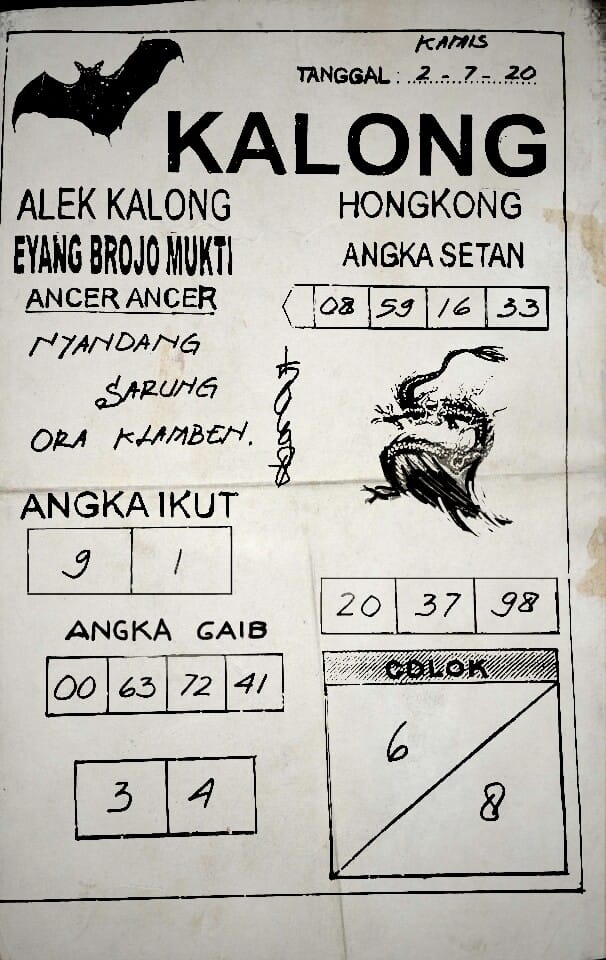 KAMIS
TANGGAL : 2 - 7 - 20
KALONG
ALEK KALONG
EYANG BROJO MUKTI
ANCER ANCER
NYANDANG
SARUNG
ORA KLAMBEN.
HONGKONG
ANGKA SETAN
08 59 16 33
ANGKA IKUT
9 1
20 37 98
ANGKA GAIB
00 63 72 41
3 4
COLOK
6
8